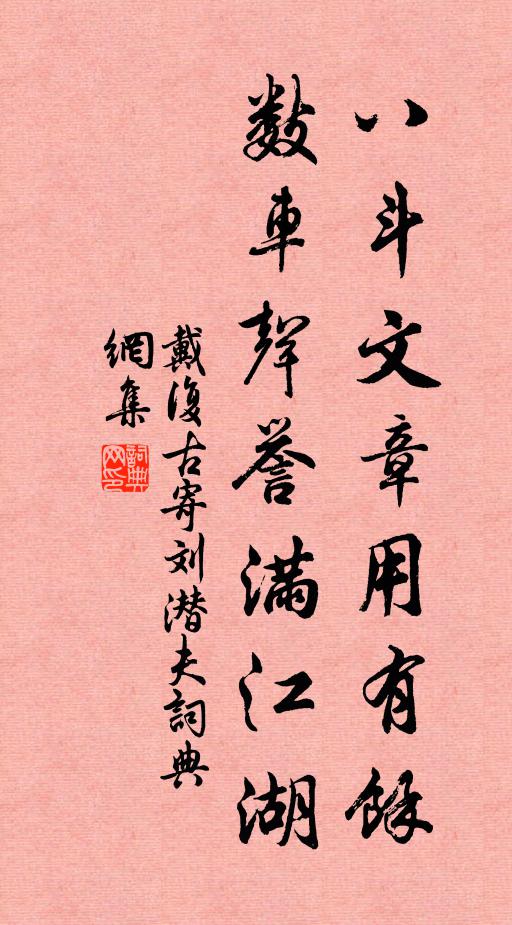 八斗文章用有餘
數車聲誉滿江湖
戴復古寄刘潜夫詞典
網集
詞典网印